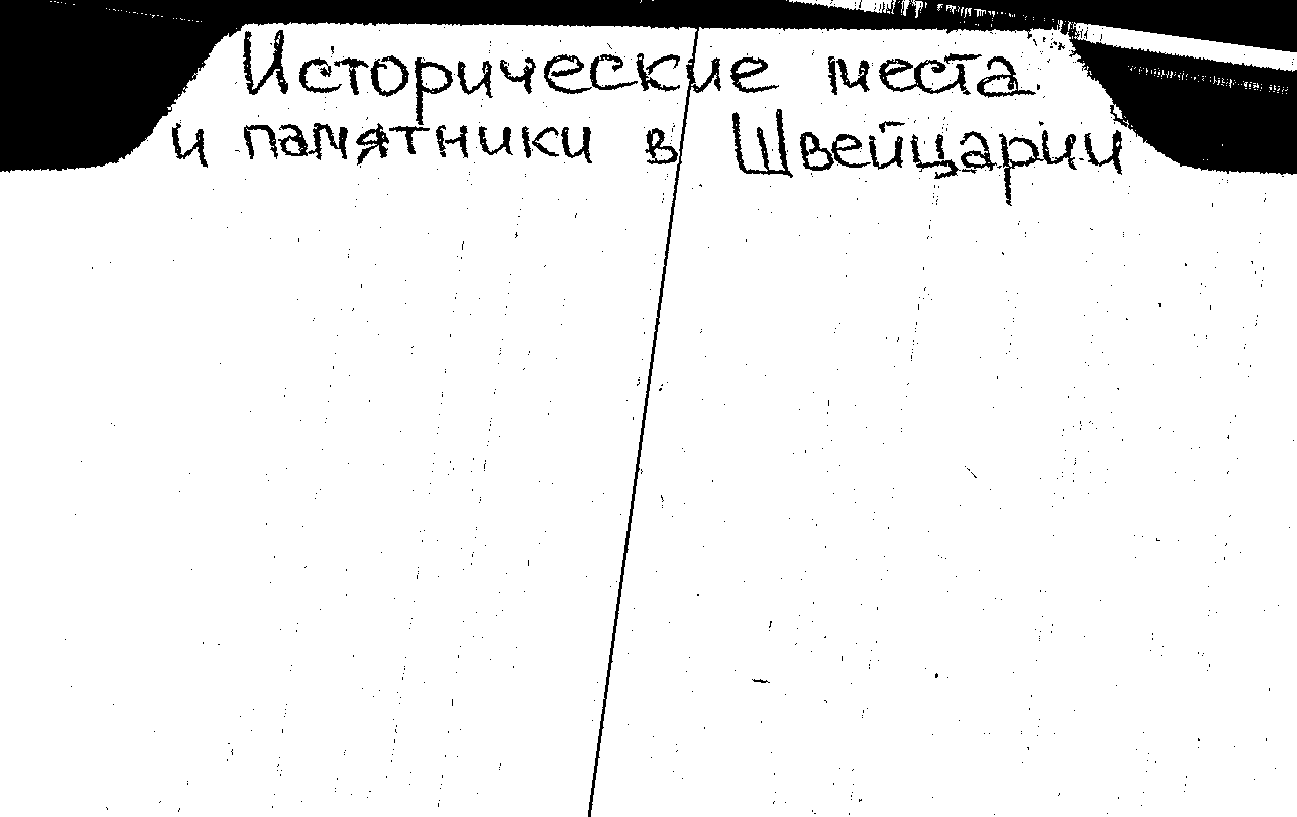 Исторические места
и памятники в Швейцарии